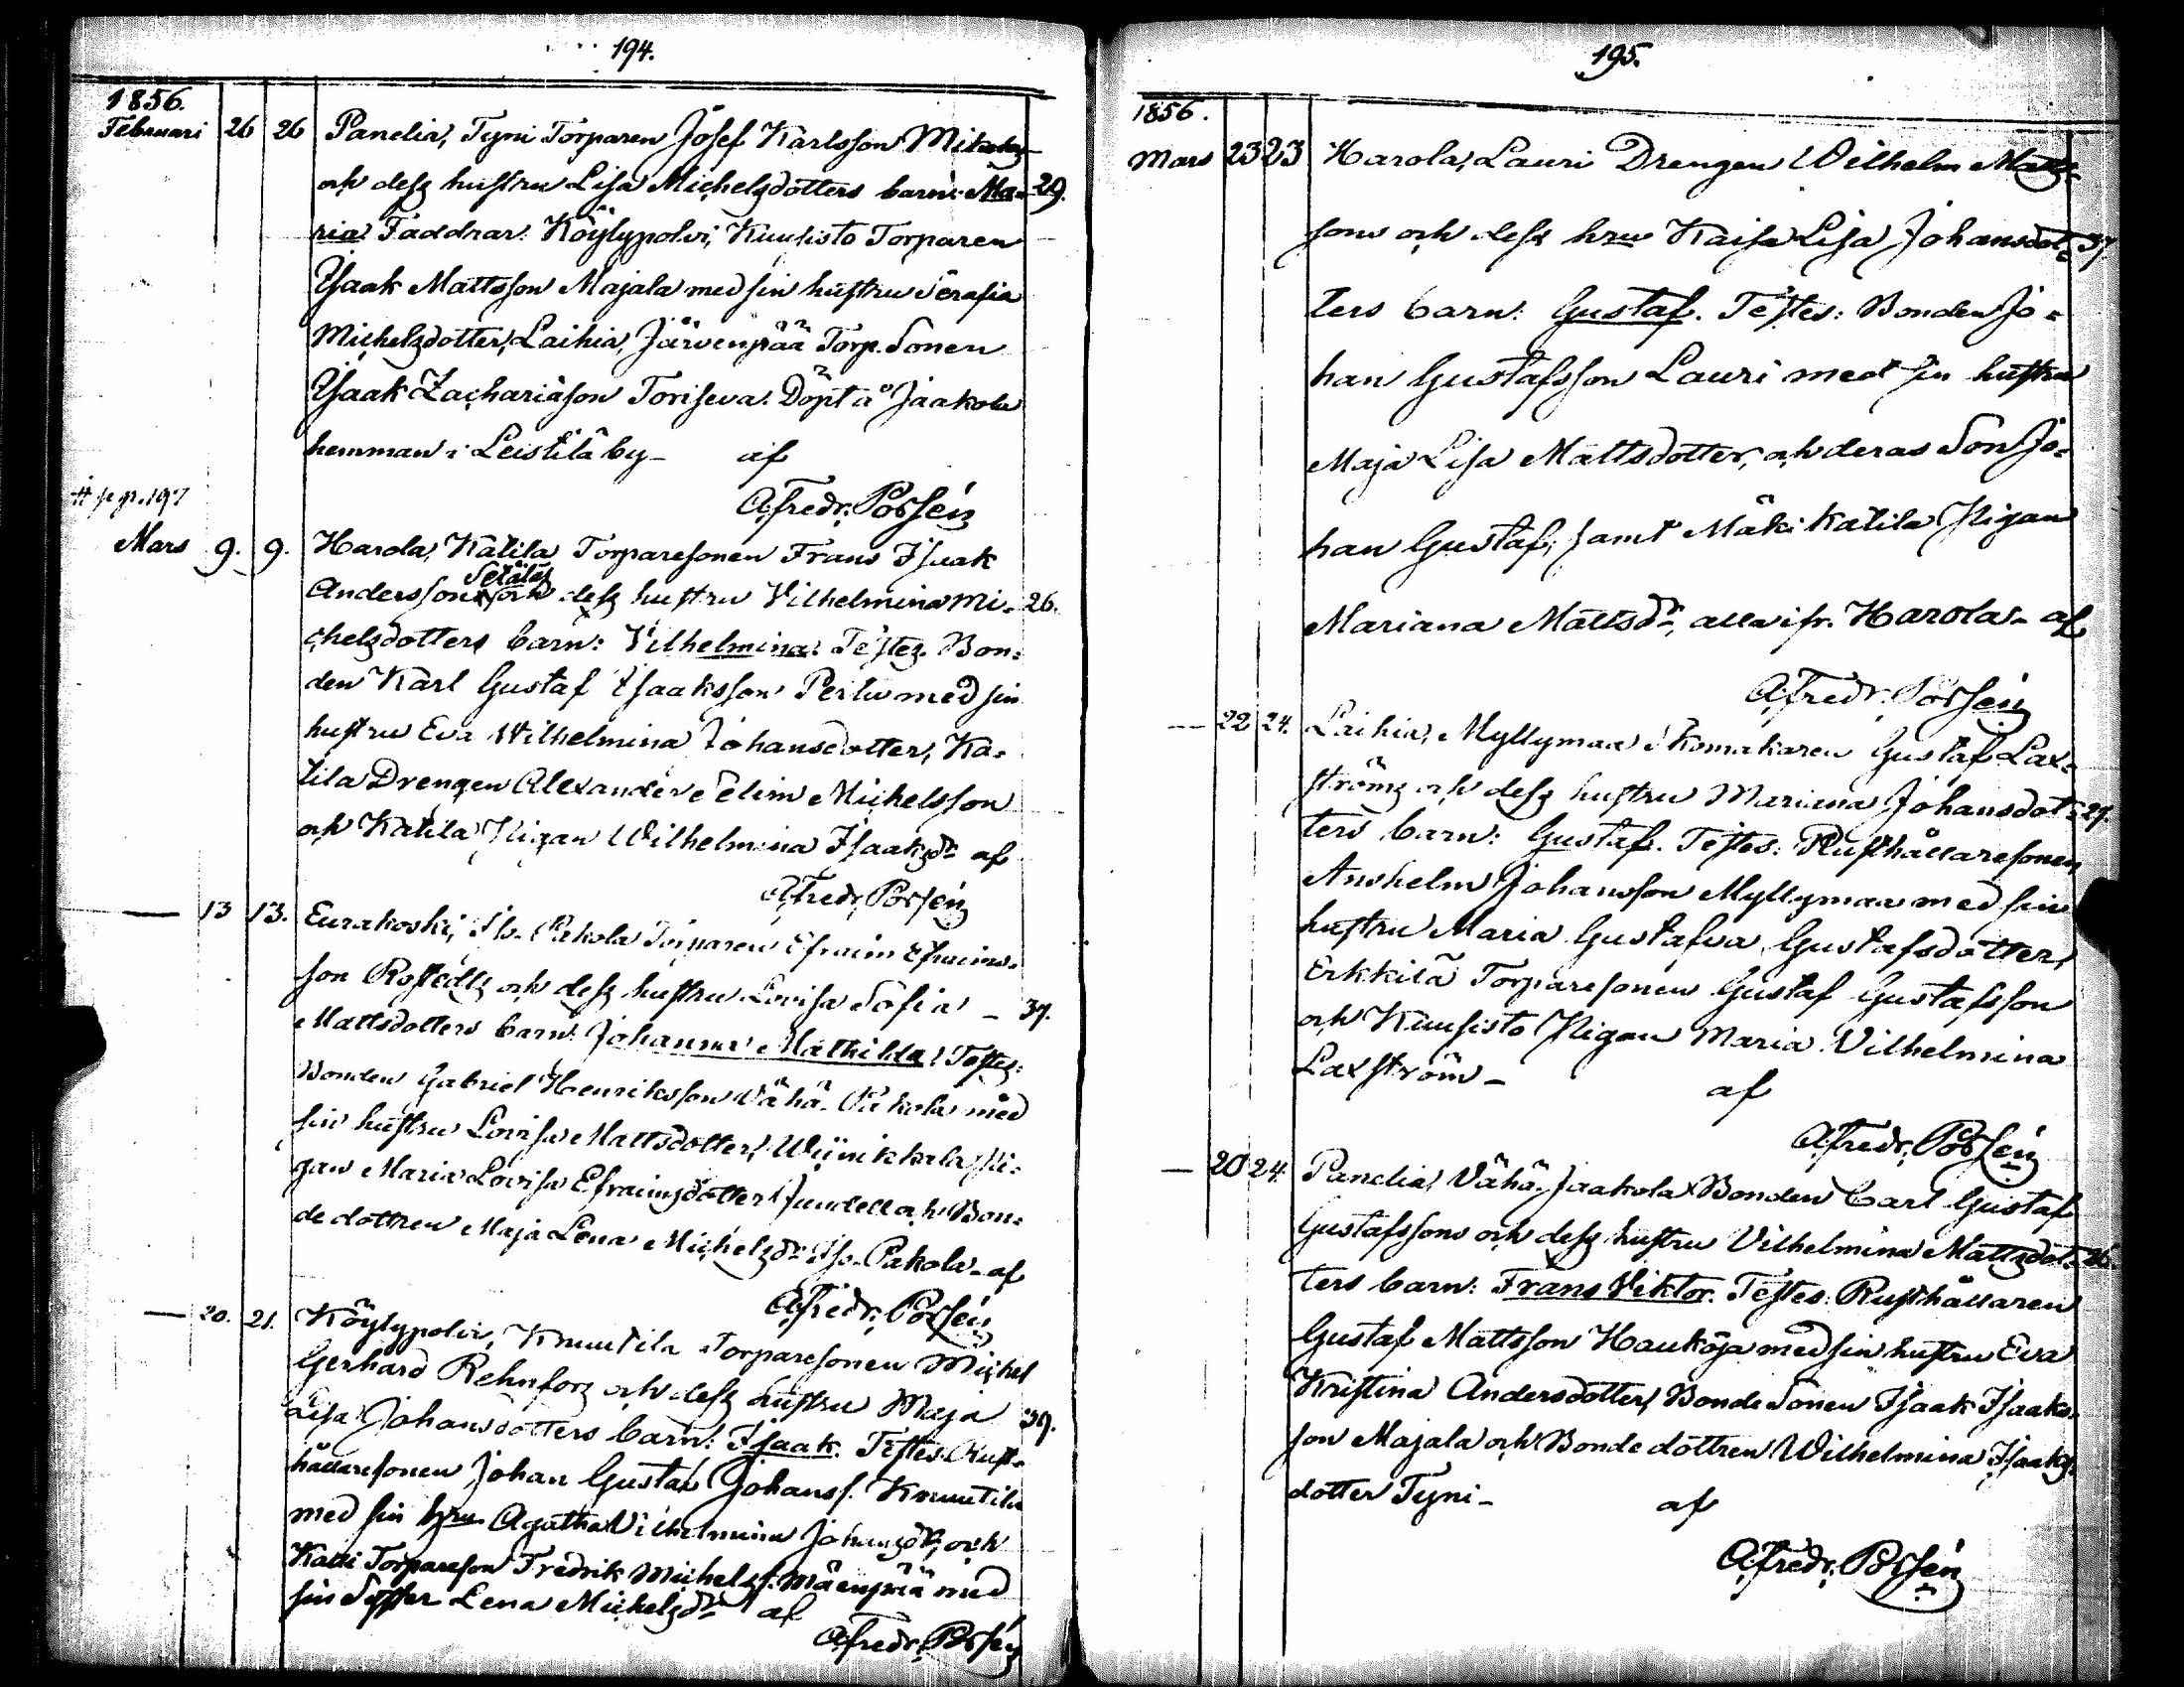 194.
1856.
Februari 26 26 Panelia, Tyni Torparen Josef Karlsson
och dess hustru Lisa Michelsdotters barn: Ma- 29.
ria Faddrar: Köylypolvi, Kuusisto Torparen
Isaak Mattsson Majala med sin hustru Serafia
Michelsdotter, Laihia, Järvenpää Torp. Sonen
Isaak Zachariason Toriseva. Döpt å Jaakola
hemman i Leistilä by – af
A. Fredr. Porsén
197
Mars 9. 9. Harola, Katila Torparesonen Frans Isaak
Setäläs
Anderssons och dess hustru Vilhelmina Mi- 26.
chelsdotters barn: Vilhelmina. Testes. Bon-
den Karl Gustaf Isaaksson Pertu med sin
hustru Eva Wilhelmina Johansdotter, Ka-
tila Drengen Alexander Selim Michelsson
och Katila Pigan Wilhelmina Isaaksdr af
A. Fredr. Porsén
— 13 13. Eurakoski, Iso-Pakola Torparen Efraim Efraims-
son Rostedts och dess hustru Lovisa Sofia – 37.
Mattsdotters barn: Johanna Mathilda. Testes:
Bonden Gabriel Henriksson Vähä-Pakola med
sin hustru Lovisa Mattsdotter, Wiinikkala Pi-
gan Maria Lovisa Efraimsdotter Sundell och Bon-
dedottren Maja Lena Michelsdr Iso-Pakola – af
A. Fredr. Porsén
— 20. 21. Köylypolvi, Knuutila Torparesonen Michel
Gerhard Rehnfors och dess hustru Maja
Lisa Johansdotters barn: Isaak. Testes: Rust- 39.
hållaresonen Johan Gustaf Johanss. Knuutila
med sin hru Agatha Vilhelmina Johansdr, och
Katti Torpareson Fredrik Michelss. Mäenpää med
sin Syster Lena Michelsdr af
A. Fredr. Porsén
195.
1856.
Mars 23 23 Harola, Lauri Drengen Wilhelm Matts-
sons och dess hru Kaisa Lisa Johansdot- 37.
ters barn: Gustaf. Testes: Bonden Jo-
han Gustafsson Lauri med sin hustru
Maja Lisa Mattsdotter, och deras Son Jo-
han Gustaf, samt Mäki Katila Pigan
Mariana Mattsdr, alla ifr. Harola – af
A. Fredr. Porsén
— 22 24. Laihia, Myllymaa Skomakaren Gustaf Lax-
ströms och dess hustru Mariana Johansdot- 29.
ters barn: Gustaf. Testes: Rusthållaresonen
Anshelm Johansson Myllymaa med sin
hustru Maria Gustafva Gustafsdotter,
Erkkilä Torparesonen Gustaf Gustafsson
och Kuusisto Pigan Maria Vilhelmina
Laxström – af
A. Fredr. Porsén
— 20 24. Panelia, Vähä-Jaakola Bonden Carl Gustaf
Gustafssons och dess hustru Vilhelmina Mattsdot- 26.
ters barn: Frans Viktor. Testes: Rusthållaren
Gustaf Mattsson Haukoja med sin hustru Eva
Kristina Andersdotter, Bonde Sonen Isaak Isaaks-
son Majala och Bonde dottren Wilhelmina Isaaks-
dotter Tyni – af
A. Fredr. Porsén